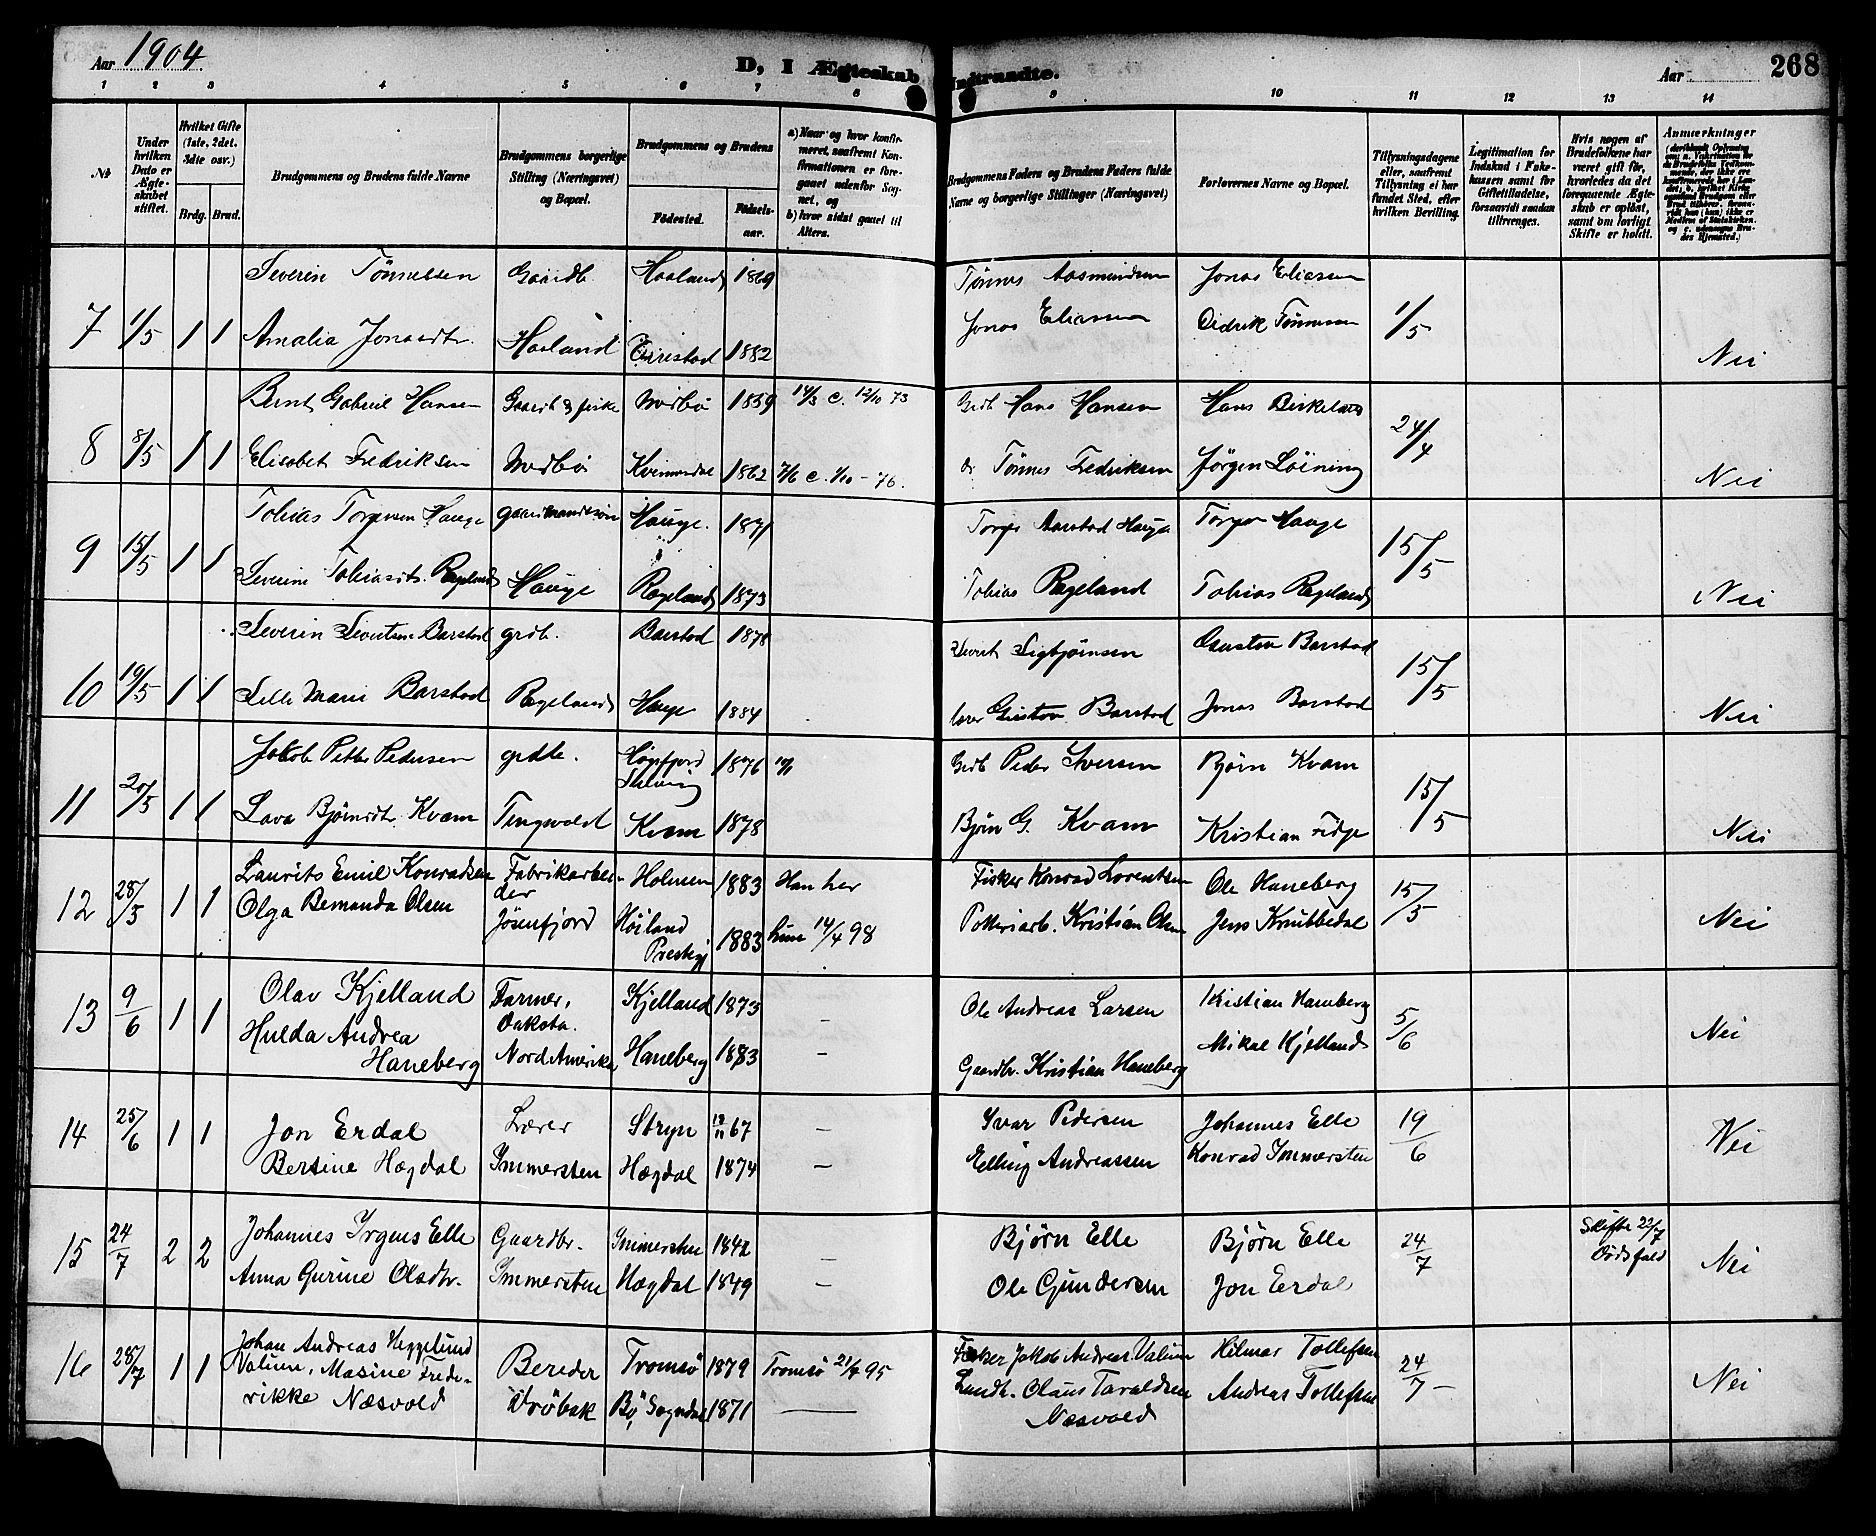 Aar 1904
D, I Ægteskab Indtraadte.
Aar 268
1 2 3 4 5 6 7 8 9 10 11 12 13 14
No
Under hvilken Dato er Ægteskabet stiftet.
Hvilket Gifte (1ste, 2det, 3die osv.)
Brdg. Brud.
Brudgommens og Brudens fulde Navne
Brudgommens borgerlige Stilling (Næringsvei) og Bopæl.
Brudgommens og Brudens
Fødested. Fødsels-aar.
a) Naar og hvor konfirmeret, saafremt Konfirmationen er foregaaet udenfor Sognet, og
b) hvor sidst gaaet til Alters.
Brudgommens Faders og Brudens Faders fulde Navne og borgerlige Stillinger (Næringsvei)
Forlovernes Navne og Bopæl.
Tillysningsdagene eller, saafremt Tillysning ei har fundet Sted, efter hvilken Bevilling.
Legitimation for Indskud i Enkekassen samt for Giftetilladelse, forsaavidt saadan tiltrænges.
Hvis nogen af Brudefolkene har været gift før, hvorledes da det foregaaende Ægteskab er opløst, samt om lovligt Skifte er holdt.
Anmærkninger
7 1/5 1 1 Severin Tønnessen Gaardb. Haaland 1869 Tønnes Aasmundsen Jonas Eliassen 1/5
Amalia Jonasdtr. Haaland Eirestad 1882 Jonas Eliassen Didrik Tønnesen Nei
8 8/5 1 1 Bernt Gabriel Hansen Gaardb & fisker Nordbø 1859 14/3 C. 12/10 73 Grdb Hans Hansen Hans Birkeland 24/4
Elisabet Fredriksen Nordbø Kvinnesdal 1862 7/6 C. 1/10 - 76. Tønnes Fredriksen Jørgen Løining Nei
9 15/5 1 1 Tobias Torgersen Hauge gaardmandssøn Hauge. 1871 Torger Aarstad Hauge Torger Hauge 15/5
Severine Tobiasdtr. Rægeland Hauge Rægeland 1873 Tobias Rægeland Tobias Rægeland Nei
10 19/5 1 1 Severin Sivertsen Barstad grdb. Barstad 1878 Sivert Sigbjørnsen Gustav Barstad 15/5
Lelle Marie Barstad Rægeland Hauge 1884 lærer Gustav Barstad Jonas Barstad Nei
11 20/5 1 1 Jakob Petter Pedersen grdb. Høgsfjord 1876 Grdb Peder Iversen Bjørn Kvam 15/5
Lava Bjørnsdtr. Kvam Tingvold Kvam 1878 Bjørn G. Kvam Kristian Fidje Nei
12 28/5 1 1 Laurits Emil Konradsen Fabrikarbeider Holmen 1883 Han her Fisker Konrad Lorentsen Ole Haneberg 15/5
Olga Bernanda Olsen Jøsenfjord Høiland Prestgj 1883 hun 14/4 98 Potteriarb. Kristian Olsen Jens Knubbedal Nei
13 9/6 1 1 Olav Kjelland Farmer, Kjelland 1873 — Ole Andreas Larsen Kristian Haneberg 5/6 Nei
Hulda Andrea Haneberg Dakota. Nord Amerika Haneberg 1883 — Gaardbr. Kristian Haneberg Mikal Kjelland
14 25/6 1 1 Jon Erdal Lærer Stryn 67 — Ivar Pedersen Johannes Elle 19/6 Nei
Bertine Hægdal Immersten Hægdal 1874 — Elling Andreassen Konrad Immersten
15 24/7 2 2 Johannes Irgens Elle Gaardbr. Immersten 1842 — Bjørn Elle Bjørn Elle 24/7 Skifte 22/7 Dødsfald Nei
Anna Gurine Olsdtr. Immersten Hægdal 1849 — Ole Gundersen Jon Erdal
16 28/7 1 1 Johan Andreas Heggelund Valium, Masine Frederikke Næsvold Bereder Tromsø 1879 Tromsø 21/4 95 Fisker Jakob Andreas Valium Hilmar Tollefsen 24/7 — Nei
Drøbak Bø, Sogndal 1871 — Landh. Olaus Taraldsen Næsvold Andreas Tollefsen